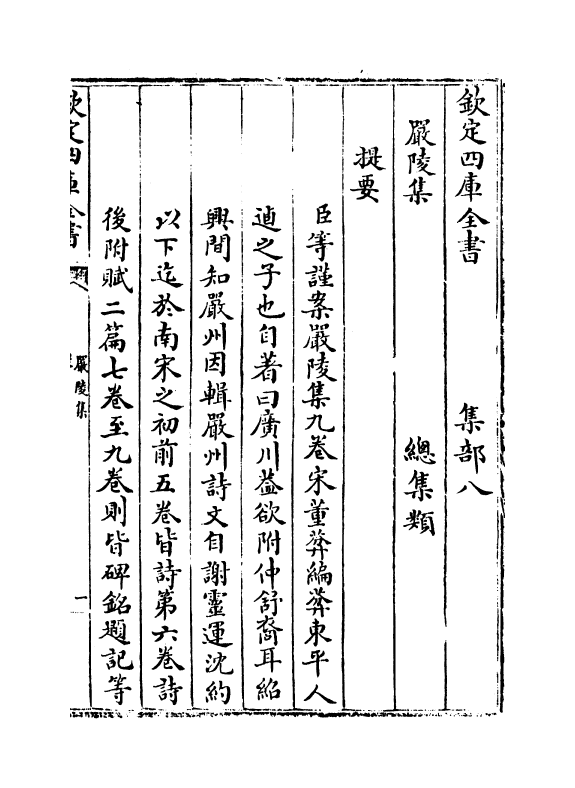 欽定四庫全書　集部八
嚴陵集　總集類
提要
臣等謹案嚴陵集九卷宋董棻編棻東平人
逌之子也自著曰廣川葢欲附仲舒裔耳紹
興間知嚴州因輯嚴州詩文自謝靈運沈約
以下迄於南宋之初前五卷皆詩第六卷詩
後附賦二篇七卷至九卷則皆碑銘題記等
欽定四庫全書
嚴陵集
一